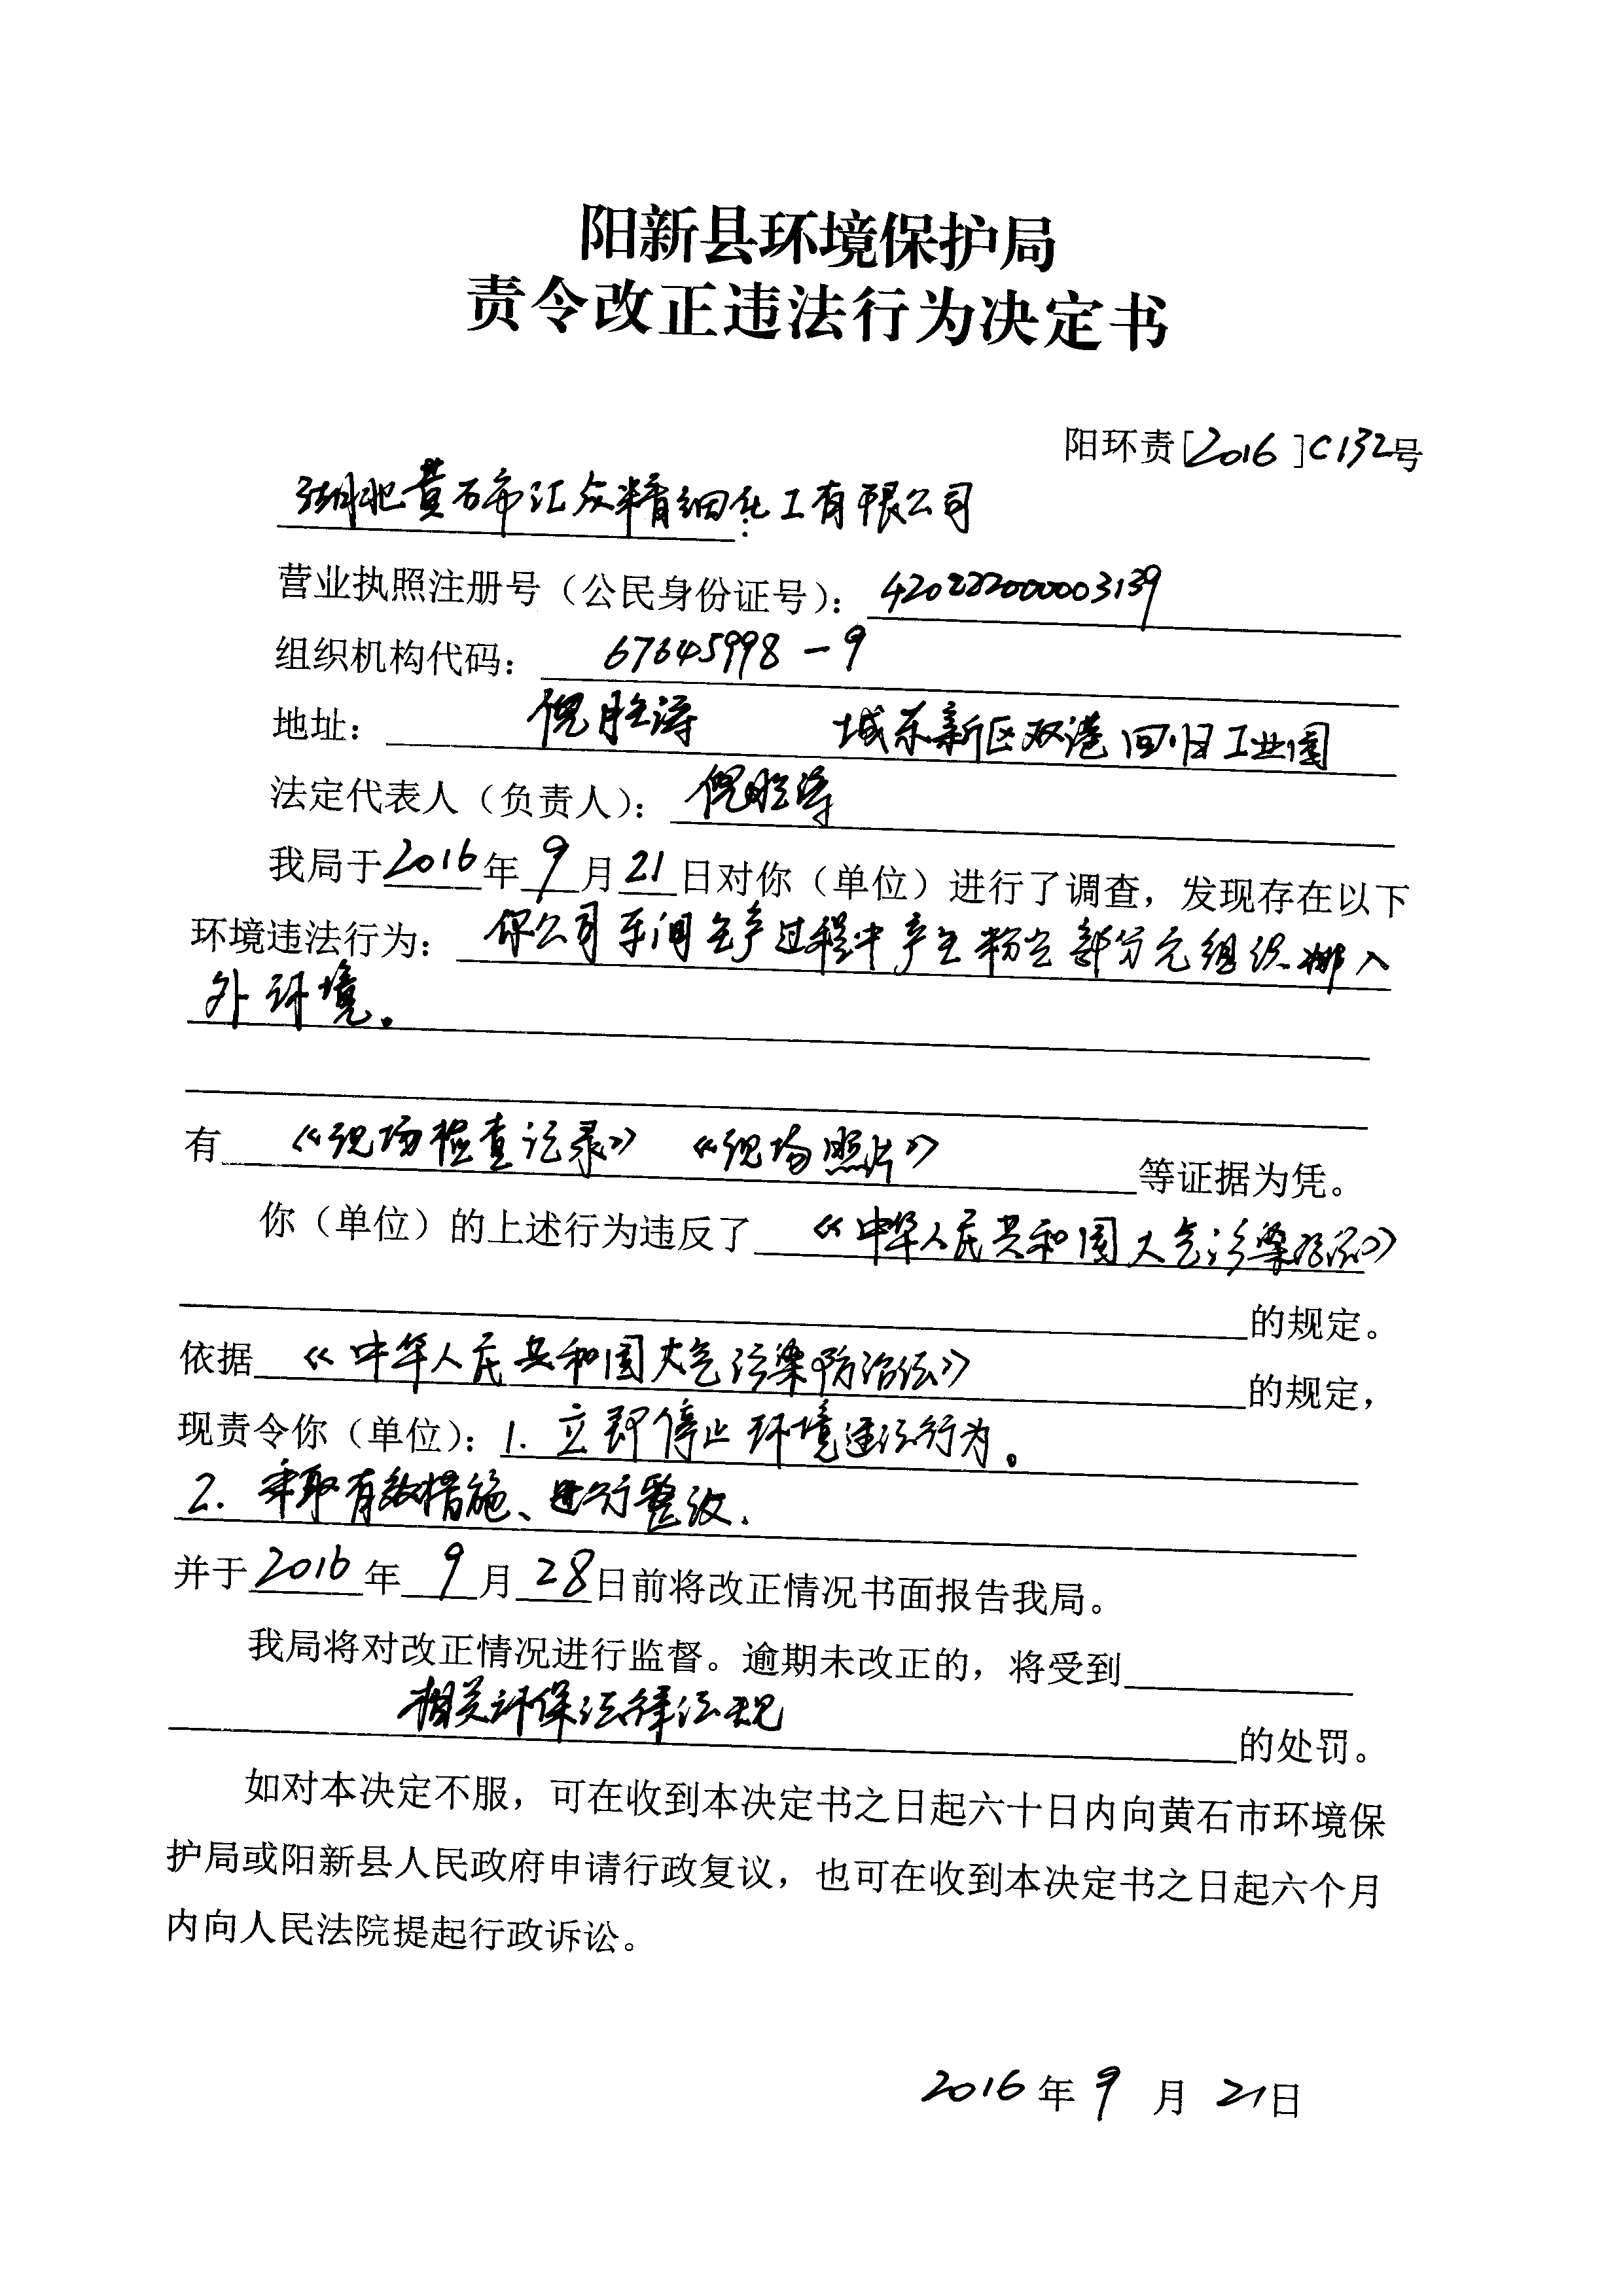 阳新县环境保护局
责令改正违法行为决定书
阳环责[2016]C132号
湖北黄石市汇众精细化工有限公司:
营业执照注册号（公民身份证号）：420222000003139
组织机构代码：67645998-9
地址：倪胜涛 城东新区双港回归工业园
法定代表人（负责人）：倪胜涛
我局于2016年9月21日对你（单位）进行了调查，发现存在以下
环境违法行为：你公司车间生产过程中产生粉尘部分无组织排入
外环境。
有《现场检查记录》《现场照片》等证据为凭。
你（单位）的上述行为违反了《中华人民共和国大气污染
的规定。
依据《中华人民共和国大气污染防治法》的规定，
现责令你（单位）：1.立即停止环境违法行为。
2.采取有效措施、进行整改.
并于2016年9月28日前将改正情况书面报告我局。
我局将对改正情况进行监督。逾期未改正的，将受到
相关环保法律法规的处罚。
如对本决定不服，可在收到本决定书之日起六十日内向黄石市环境保
护局或阳新县人民政府申请行政复议，也可在收到本决定书之日起六个月
内向人民法院提起行政诉讼。
2016年9月21日